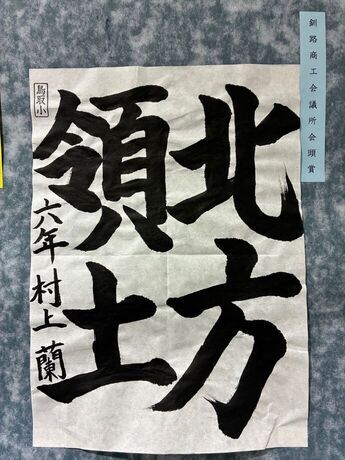 釧路商工会議所会頭賞
北方
領土
鳥取小
六年 村上 蘭